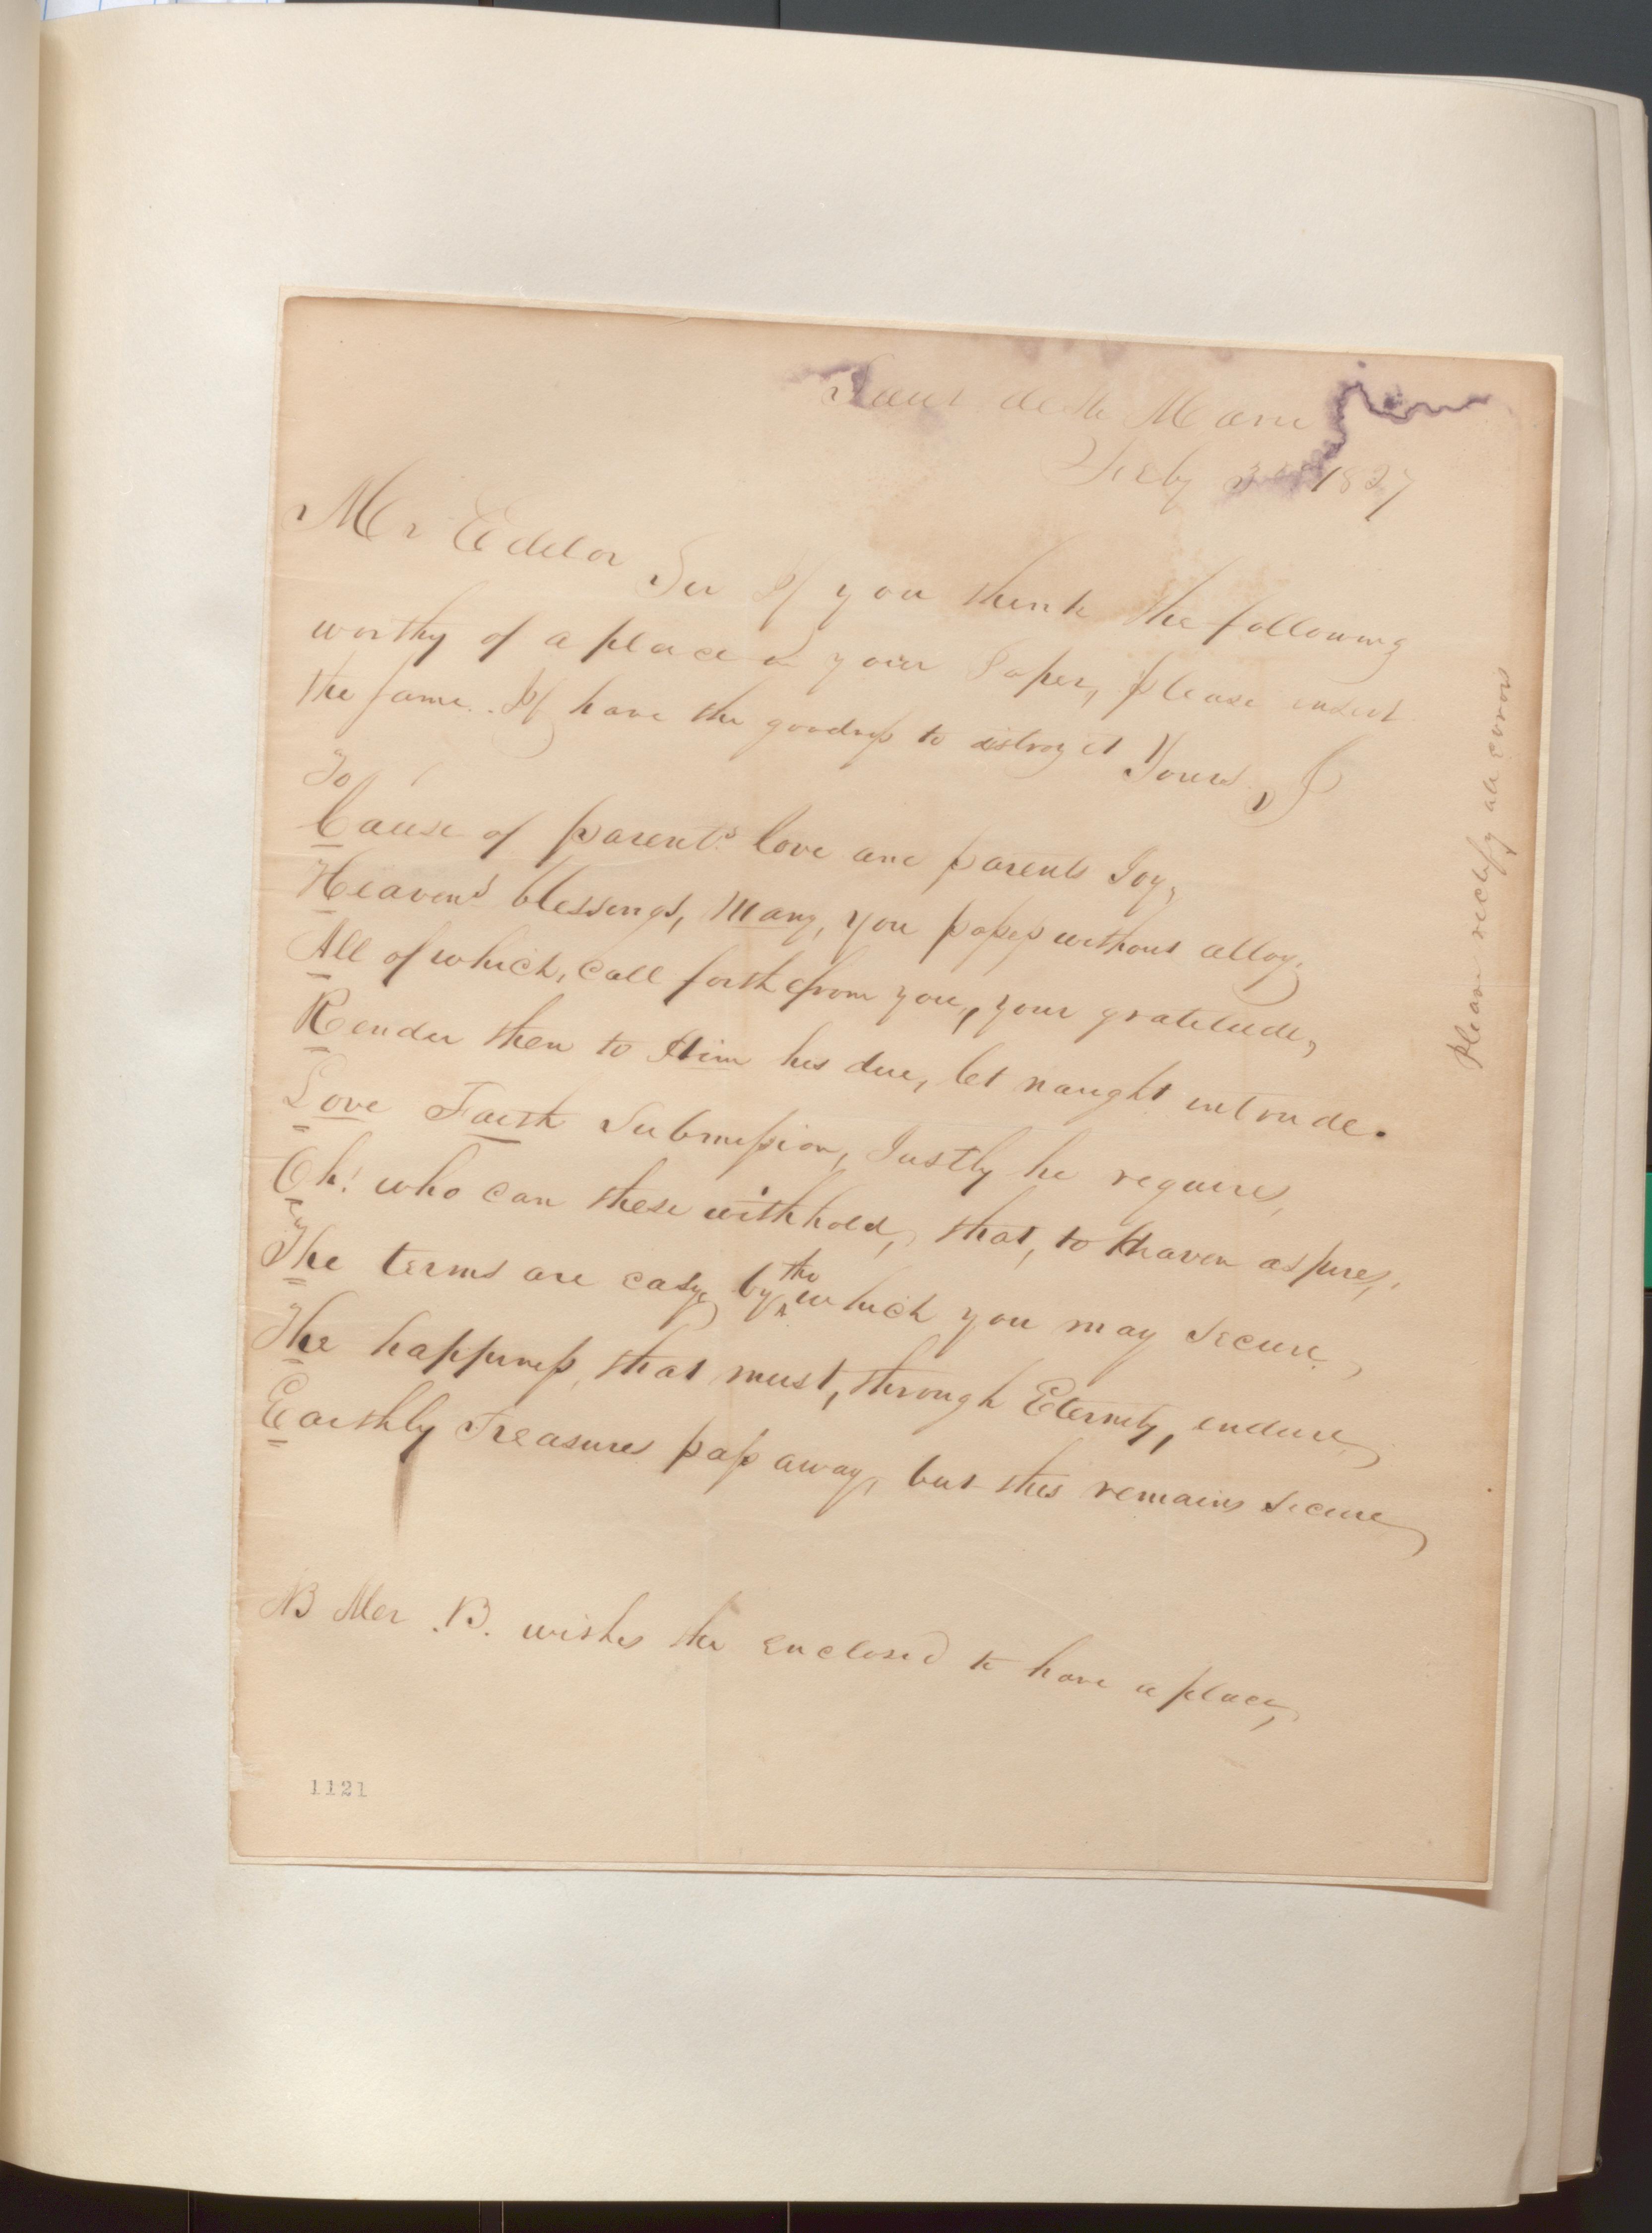 Saut de Ste Marie
Feby 1827
Mr Editor
Sir If you think the following
worthy of a place in your Paper, please insert
the same. If have the goodness to distroy it Yours, J
To
Cause of parents love and parents Joy,
Heavens blessings, Many, you possess without alloy,
All of which, call forth from you, your gratitude,
Render then to Him his due, let naught intrude.
Love Faith Submission, Justly he requires,
Oh! who can these withhold, that, to Heaven aspires,
The terms are easy, by the which you may secure,
The happiness, that must, through Eternity, endure,
Earthly Treasures pass away, but this remains secure,
NB Mr B. wishes the enclosed to have a place,
Please rectify all errors
1121